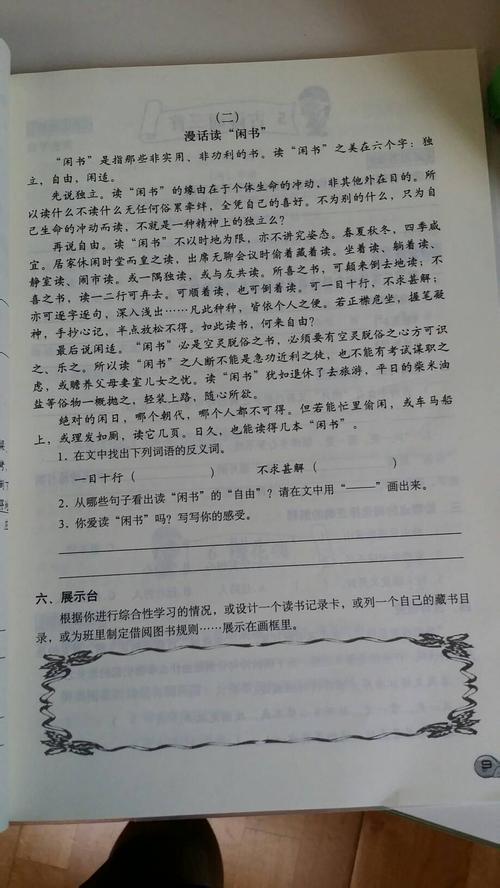 （二）
漫话读“闲书”
“闲书”是指那些非实用、非功利的书。读“闲书”之美在六个字：独
立，自由，闲适。
先说独立。读“闲书”的缘由在于个体生命的冲动，非其他外在目的。所
以读什么不读什么无任何俗累牵绊，全凭自己的喜好。不为别的什么，只为自
己生命的冲动而读，不就是一种精神上的独立么？
再说自由。读“闲书”不以时地为限，亦不讲究姿态。春夏秋冬，四季咸
宜。居家休闲时堂而皇之读，出席无聊会议时偷着藏着读。坐着读、躺着读、
静室读、闹市读。或一隅独读，或与友共读。所喜之书，可颠来倒去地读；不
喜之书，读一二行可弃去。可顺着读，也可倒着读。可一目十行，不求甚解；
亦可逐字逐句，深入浅出……凡此种种，皆依个人之便。若正襟危坐，握笔凝
神，手抄心记，半点放松不得。如此读书，何来自由？
最后说闲适。“闲书”必是空灵脱俗之书，必须要有空灵脱俗之心方可识
之、乐之。所以读“闲书”之人断不能是急功近利之徒，也不能有考试谋职之
虑，或赡养父母妻室儿女之忧。读“闲书”犹如退休了去旅游，平日的柴米油
盐等俗物一概抛之，轻装上路，随心所欲。
绝对的闲日，哪个朝代，哪个人都不可得。但若能忙里偷闲，或车马船
上，或理发如厕，读它几页。日久，也能读得几本“闲书”。
1. 在文中找出下列词语的反义词。
一目十行（　　　　） 不求甚解（　　　　）
2. 从哪些句子看出读“闲书”的“自由”？请在文中用“——”画出来。
3. 你爱读“闲书”吗？写写你的感受。
六、展示台
根据你进行综合性学习的情况，或设计一个读书记录卡，或列一个自己的藏书目
录，或为班里制定借阅图书规则……展示在画框里。
9